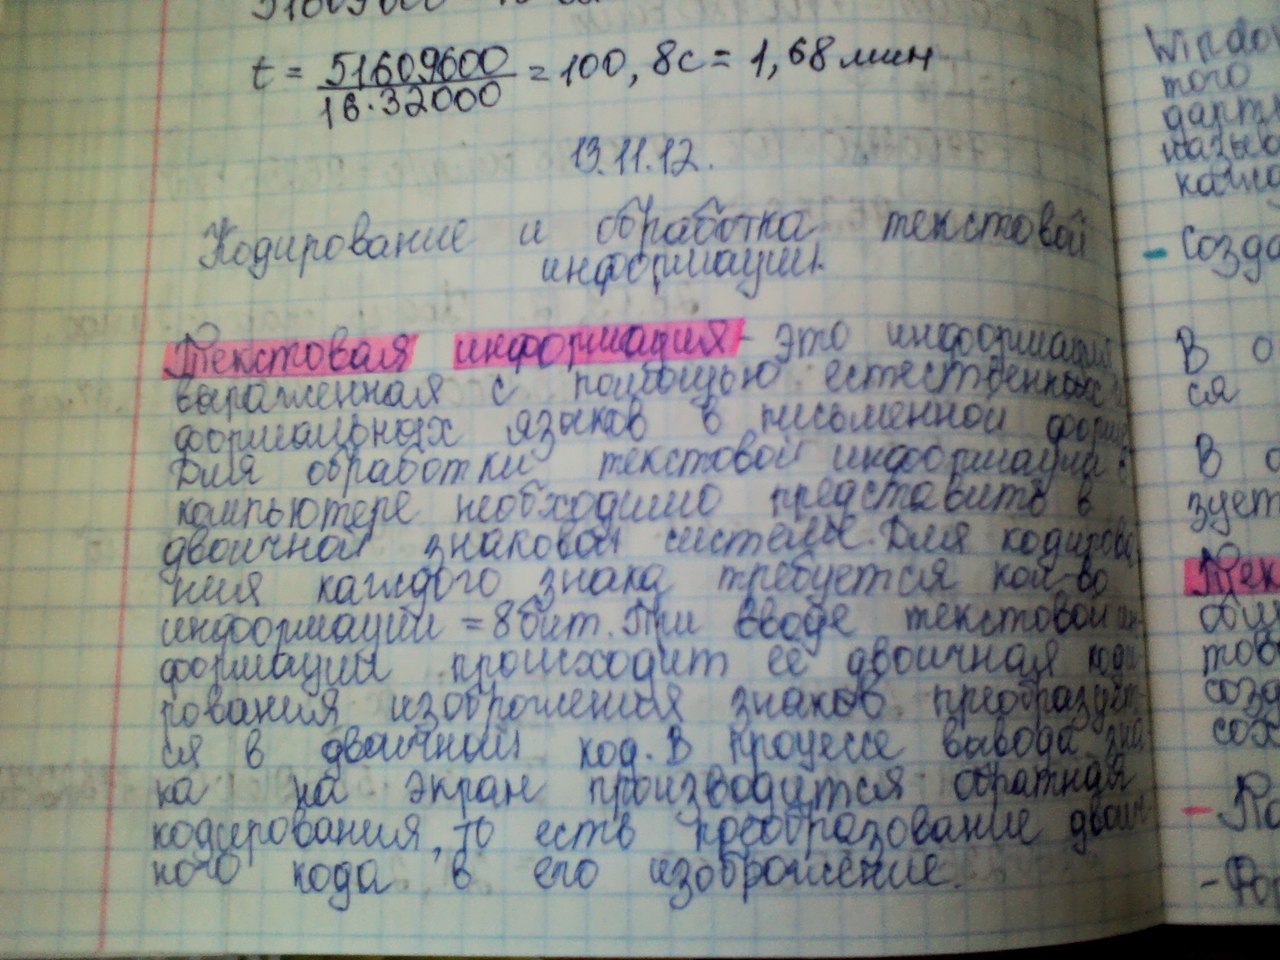 t = 51609600 / 16·32000 = 100,8с = 1,68 мин
13.11.12.
Кодирование и обработка текстовой
информации.
Текстовая информация - это информация,
выраженная с помощью естественных
формальных языков в письменной форме
Для обработки текстовой информации в
компьютере необходимо представить в
двоичной знаковой системе. Для кодирова
ния каждого знака требуется кол-во
информации = 8 бит. При вводе текстовой ин-
формации происходит её двоичная коди
рования изображения знаков преобразует
ся в двоичный код. В процессе вывода зна
ка на экран производится обратная
кодирования, то есть преобразование двоич
ного кода в его изображение.
Window
того
созда
В о
ся
В о
зует
Тек
тов
созд
сох
- Ра
- Фор